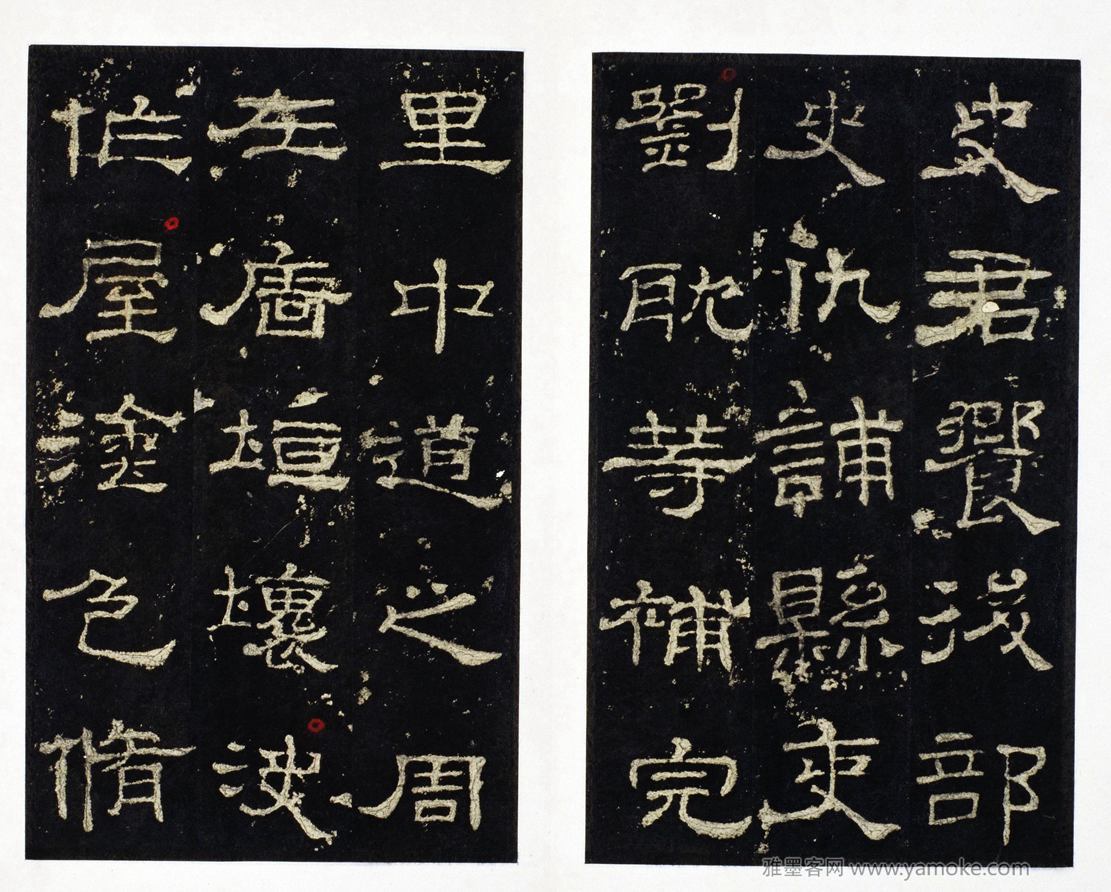 史君饗後部
史仇誧縣吏
劉耽等補完
里中道之周
左廧垣壞決
作屋塗色脩
雅墨客网 www.yamoke.com